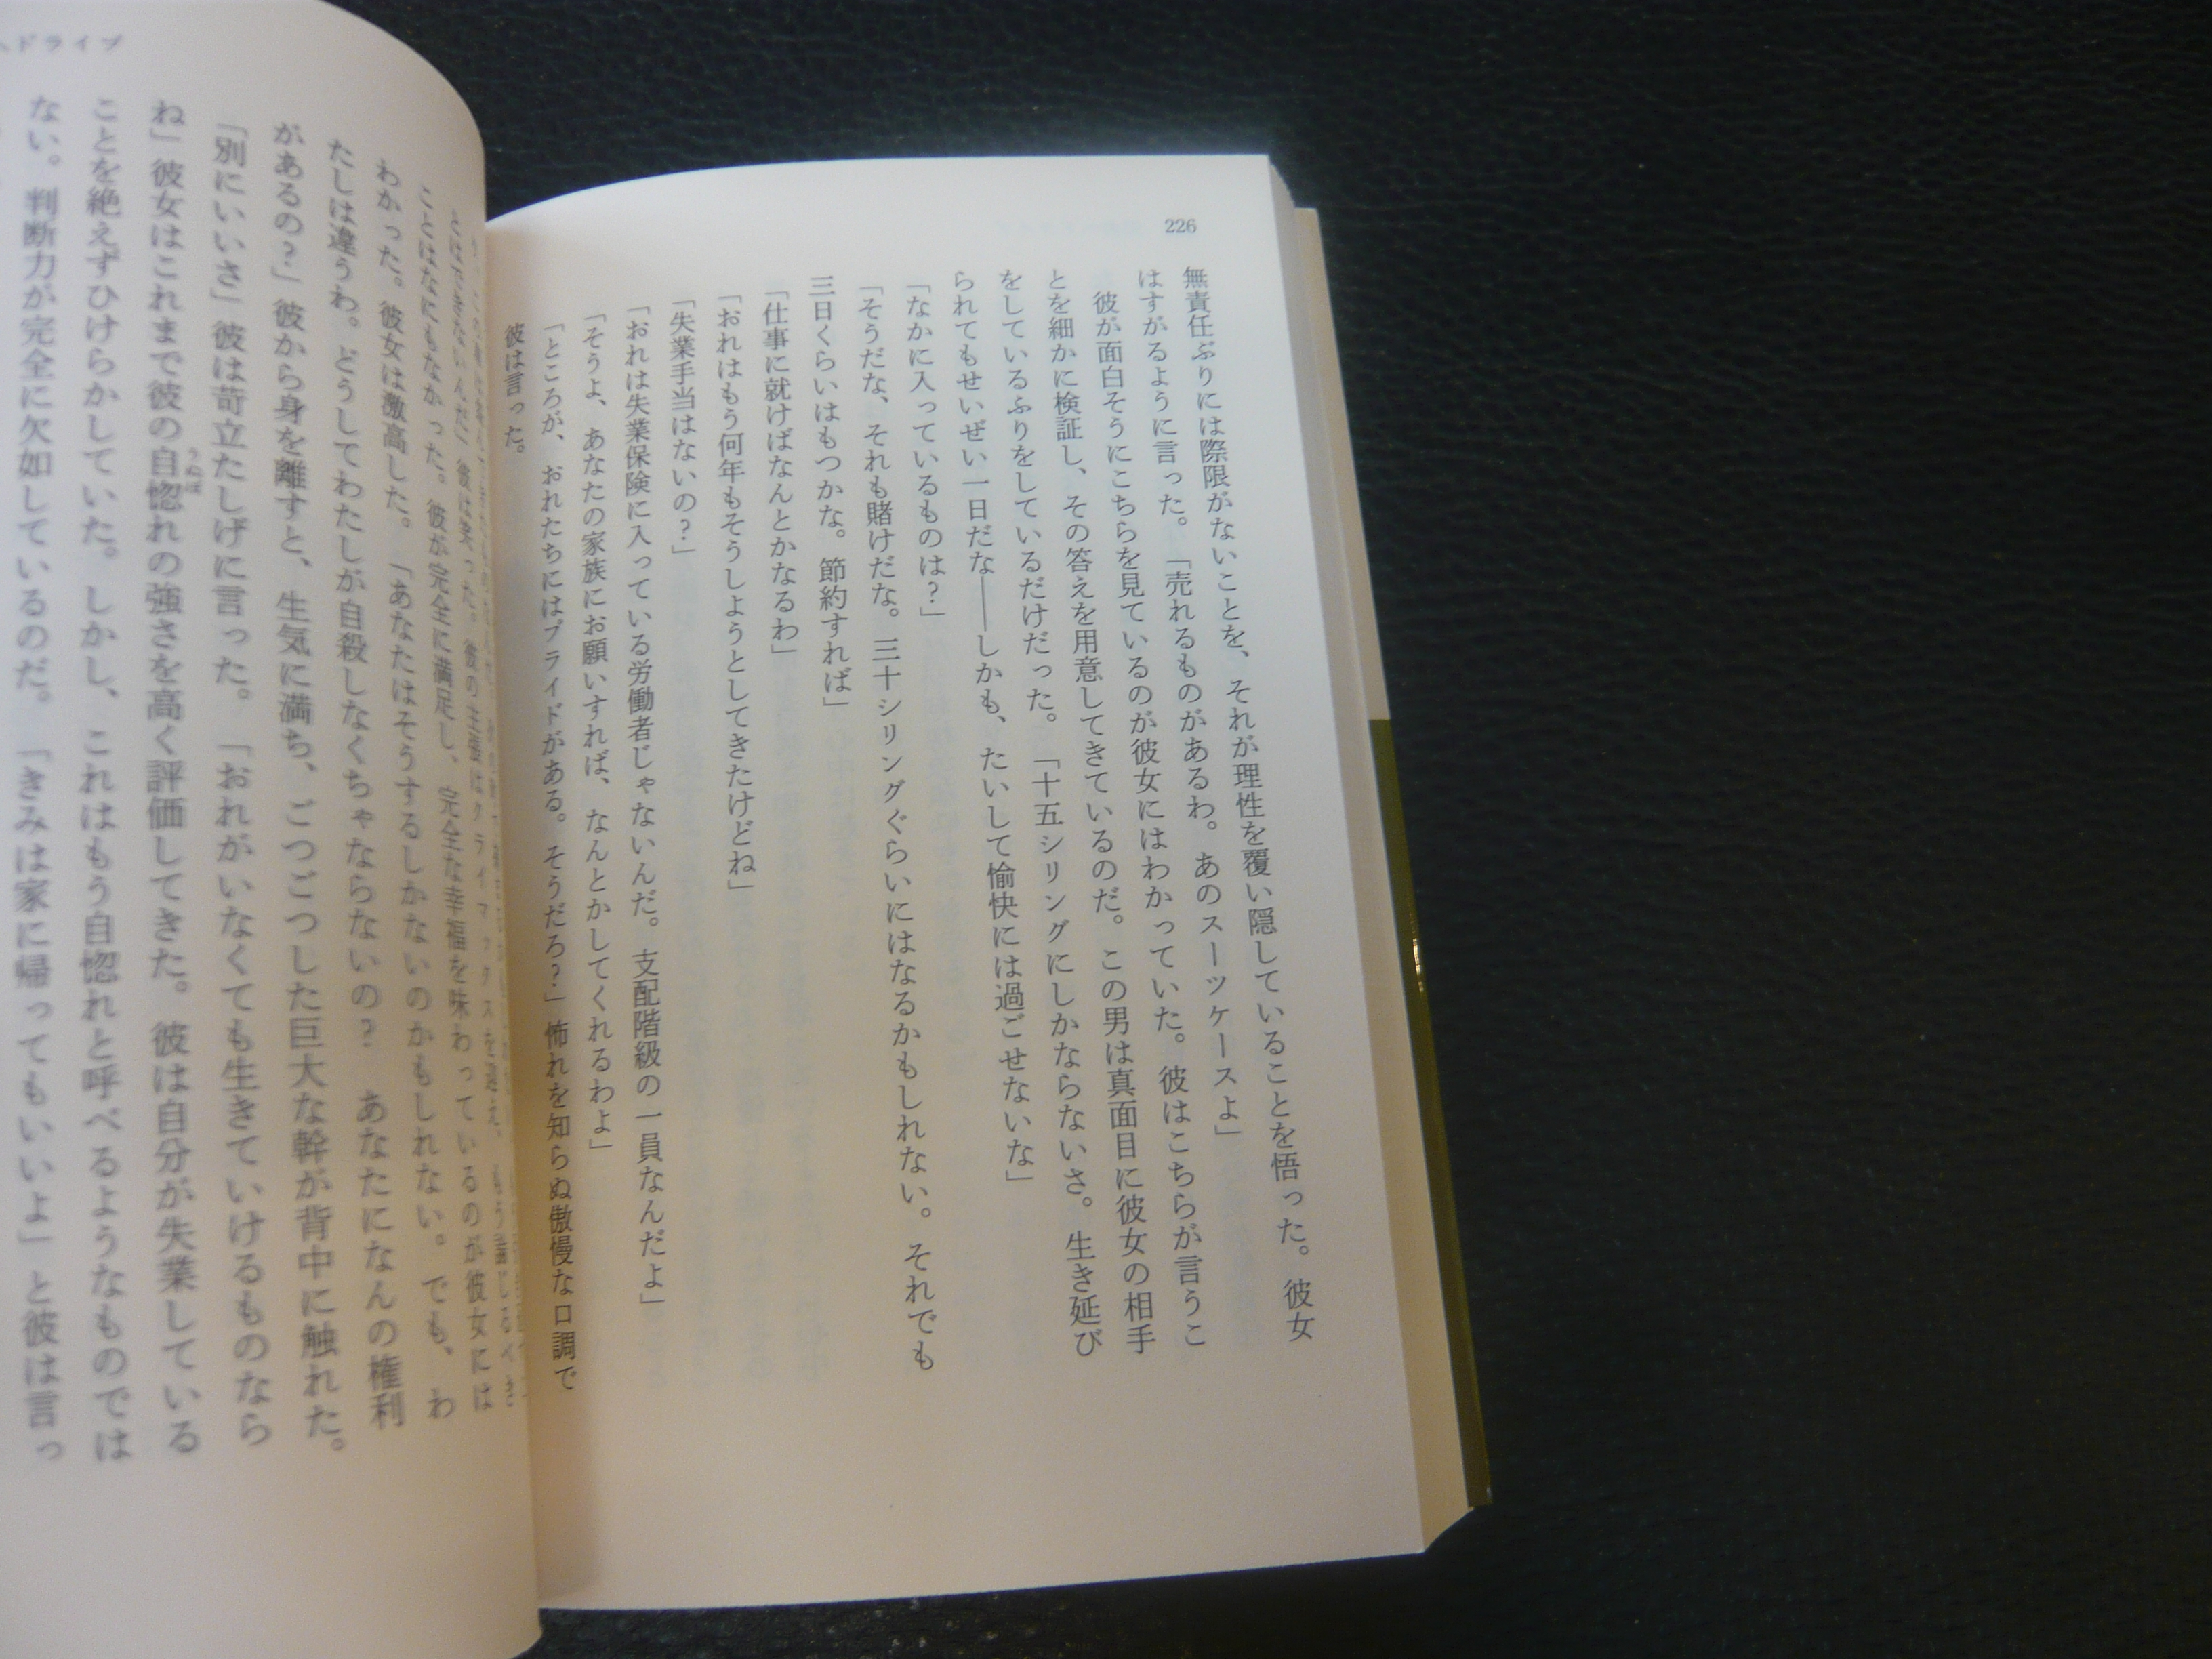 226
無責任ぶりには際限がないことを、それが理性を覆い隠していることを悟った。彼女
はすがるように言った。「売れるものがあるわ。あのスーツケースよ」
彼が面白そうにこちらを見ているのが彼女にはわかっていた。彼はこちらが言うこ
とを細かに検証し、その答えを用意してきているのだ。この男は真面目に彼女の相手
をしているふりをしているだけだった。「十五シリングにしかならないさ。生き延び
られてもせいぜい一日だな――しかも、たいして愉快には過ごせないな」
「なかに入っているものは?」
「そうだな、それも賭けだな。三十シリングぐらいにはなるかもしれない。それでも
三日くらいはもつかな。節約すれば」
「仕事に就けばなんとかなるわ」
「おれはもう何年もそうしようとしてきたけどね」
「失業手当はないの?」
「おれは失業保険に入っている労働者じゃないんだ。支配階級の一員なんだよ」
「そうよ、あなたの家族にお願いすれば、なんとかしてくれるわよ」
「ところが、おれたちにはプライドがある。そうだろ?」怖れを知らぬ傲慢な口調で
彼は言った。
ヘドライブ
とはできないんだ」彼は笑った。彼の主張はクライマックスを迎え、もう論じるべき
ことはなにもなかった。彼が完全に満足し、完全な幸福を味わっているのが彼女には
わかった。彼女は激高した。「あなたはそうするしかないのかもしれない。でも、わ
たしは違うわ。どうしてわたしが自殺しなくちゃならないの? あなたになんの権利
があるの?」彼から身を離すと、生気に満ち、ごつごつした巨大な幹が背中に触れた。
「別にいいさ」彼は苛立たしげに言った。「おれがいなくても生きていけるものなら
ね」彼女はこれまで彼の自惚れの強さを高く評価してきた。彼は自分が失業している
うぬぼ
ことを絶えずひけらかしていた。しかし、これはもう自惚れと呼べるようなものでは
ない。判断力が完全に欠如しているのだ。「きみは家に帰ってもいいよ」と彼は言っ